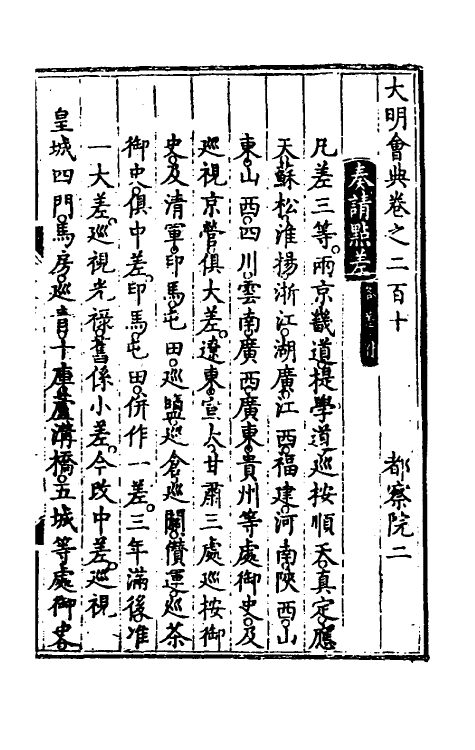 大明會典卷之二百十　都察院二
奏請點差
凡差三等。兩京畿道。提學道。巡按順天。真定。應
天。蘇松。淮揚。浙江。湖廣。江西。福建。河南。陝西。山
東。山西。四川。雲南。廣西。廣東。貴州等處御史。及
巡視京營。俱大差。遼東。宣大。甘肅三處巡按御
史。及清軍。印馬。屯田。巡鹽。巡倉。巡關。儹運。巡茶
御史。俱中差。印馬。屯田。併作一差。三年滿後。准
一大差。巡視光祿。舊係小差。今改中差。巡視
皇城四門。馬房。巡青。十庫。盧溝橋。五城等處御史